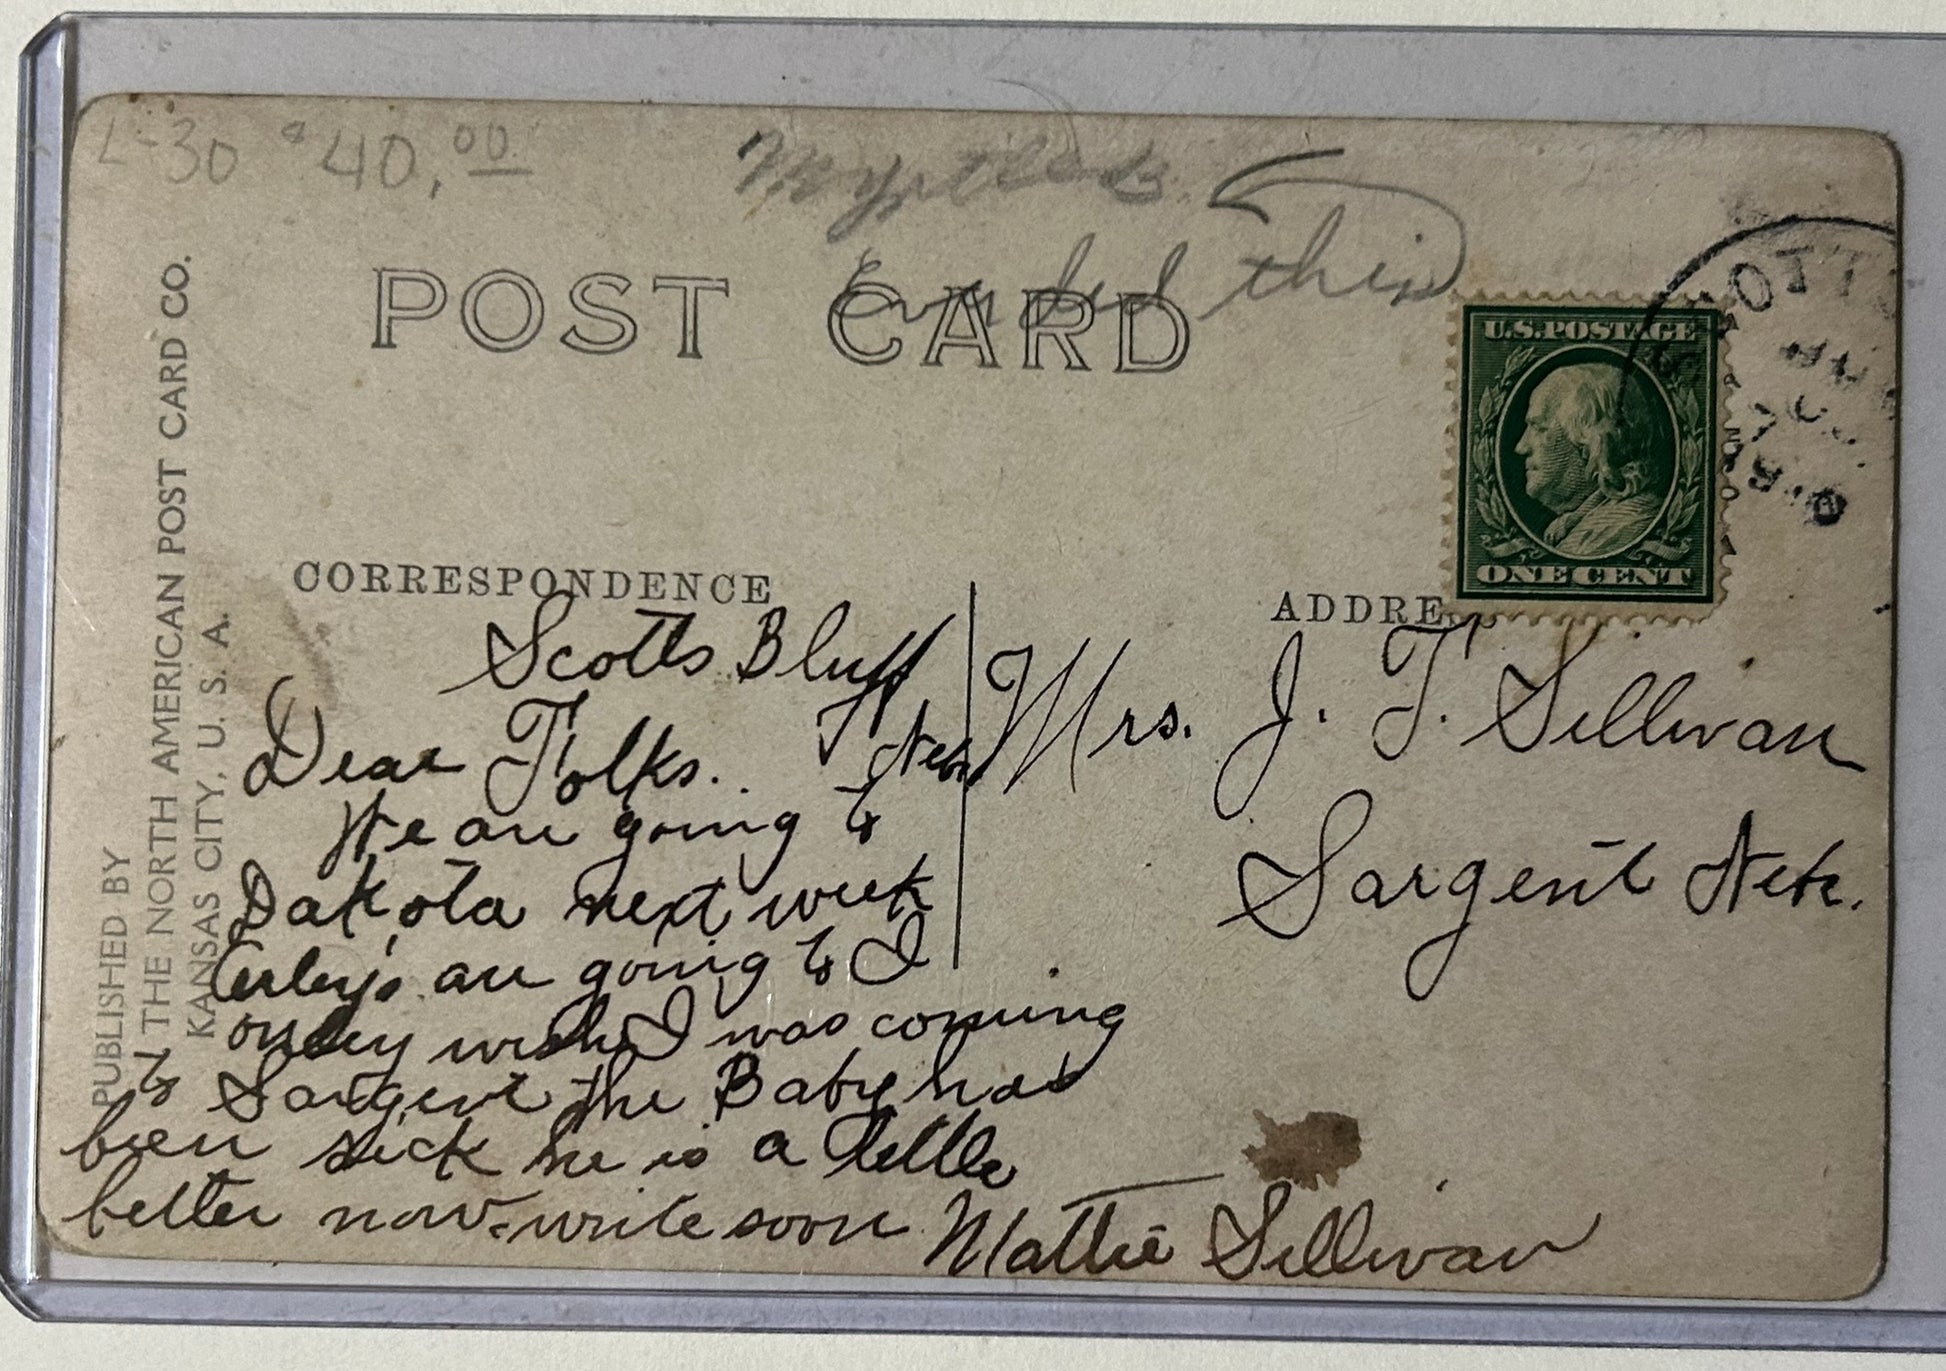 L-30 $40.00
Myrtle
this
POST CARD
U.S. POSTAGE
ONE CENT
PUBLISHED BY
THE NORTH AMERICAN POST CARD CO.
KANSAS CITY, U. S. A.
CORRESPONDENCE
Scotts Bluff
Neb.
Dear Folks.
We are going to
Dakota next week
are going to I
onley wish I was coming
to Sargent the Baby has
been sick he is a little
better now. write soon
Mattie Sillivan
ADDRE
Mrs. J. T. Sillivan
Sargent Neb.